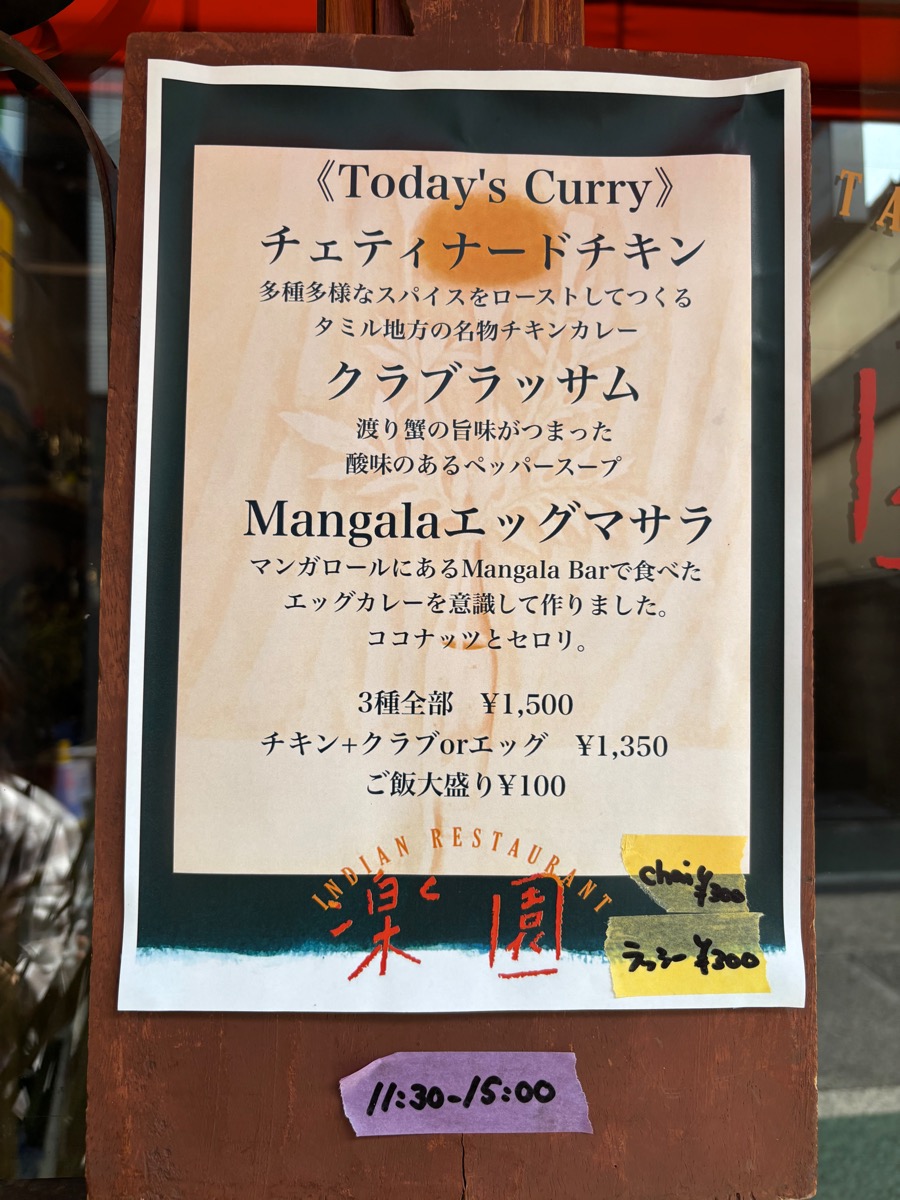 《Today's Curry》
チェティナードチキン
多種多様なスパイスをローストしてつくる
タミル地方の名物チキンカレー
クラブラッサム
渡り蟹の旨味がつまった
酸味のあるペッパースープ
Mangalaエッグマサラ
マンガロールにあるMangala Barで食べた
エッグカレーを意識して作りました。
ココナッツとセロリ。
3種全部 ¥1,500
チキン+クラブorエッグ ¥1,350
ご飯大盛り¥100
INDIAN RESTAURANT
楽園
chai ¥300
ラッシー ¥300
11:30-15:00
TA